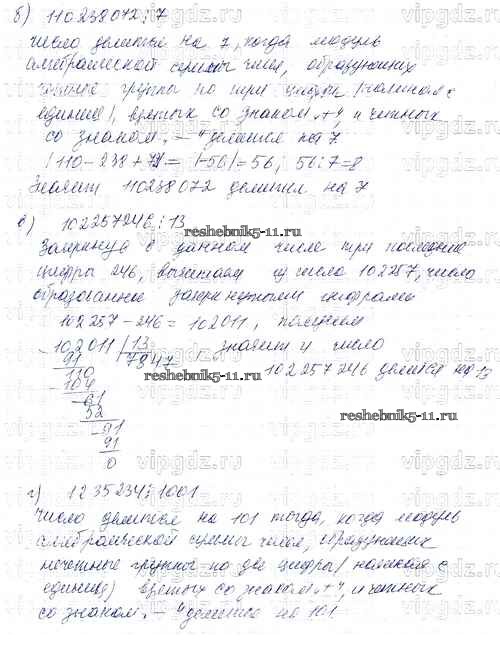 б) 110238072 : 7
число делится на 7, когда модуль
алгебраической суммы чисел, образующих
нечетные группы по три цифры (начиная с
единиц), взятых со знаком „+", и четных
со знаком „–" делится на 7
|110 – 238 + 72| = |–56| = 56; 56 : 7 = 8
Значит 110238072 делится на 7
в) 102257246 : 13
reshebnik5-11.ru
Зачеркнув в данном числе три последние
цифры 246, вычитаем из числа 102257, число
образованное зачеркнутыми цифрами
102257 – 246 = 102011, получаем
102011 | 13
91 7847
110
– 104
– 61
52
– 91
91
0
значит и число
102257246 делится на 13
reshebnik5-11.ru
reshebnik5-11.ru
г) 1235234 : 1001
Число делится на 101 тогда, когда модуль
алгебраической суммы чисел, образующих
нечетные группы по две цифры (начиная с
единиц) взятых со знаком „+", и четных
со знаком „–" делится на 101
vipgdz.ru